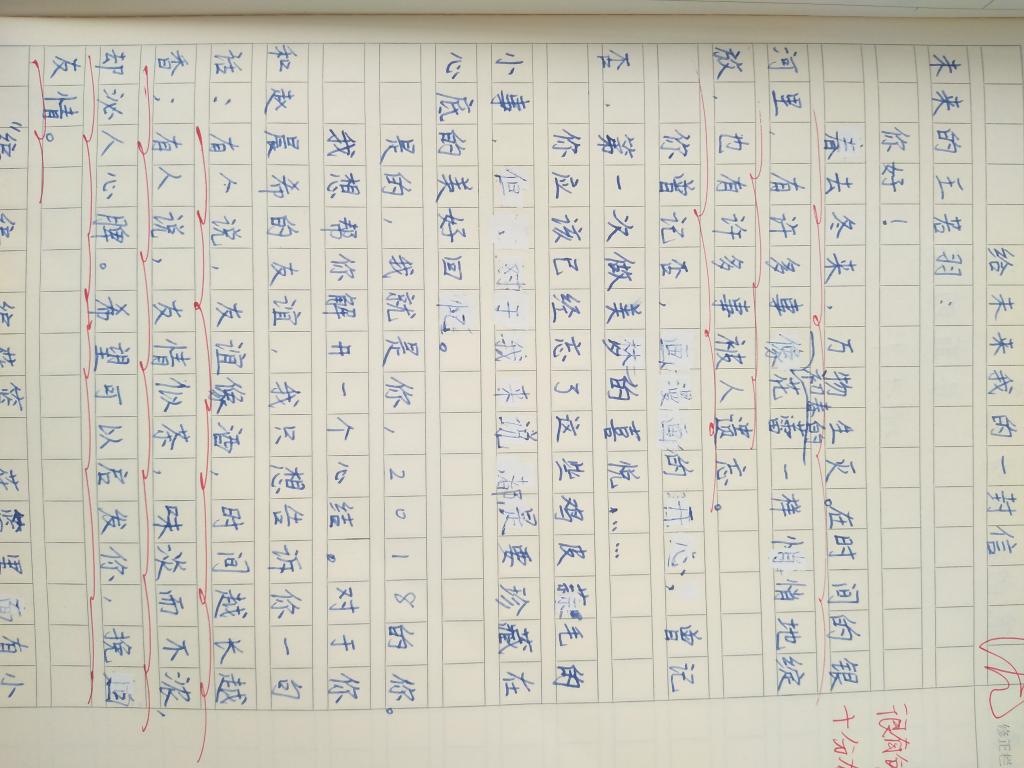 给未来我的一封信
未来的王若羽:
你好!
春去冬来,万物生灭。在时间的银
河里,有许多事像花蕾一样悄悄地绽
初春的
放,也有许多事被人遗忘。
你曾记否,画漫画的开心;曾记
否,第一次做美梦的喜悦……
你应该已经忘了这些鸡皮蒜毛的
小事,但,对于我来说,都是要珍藏在
心底的美好回忆。
是的,我就是你,2018的你。
我想帮你解开一个心结。对于你
和赵晨希的友谊,我只想告诉你一句
话:有人说,友谊像酒,时间越长越
香;有人说,友情似茶,味淡而不浓,
却沁人心脾。希望可以启发你,挽回
友情。
里面有小
很有
十分
修正栏